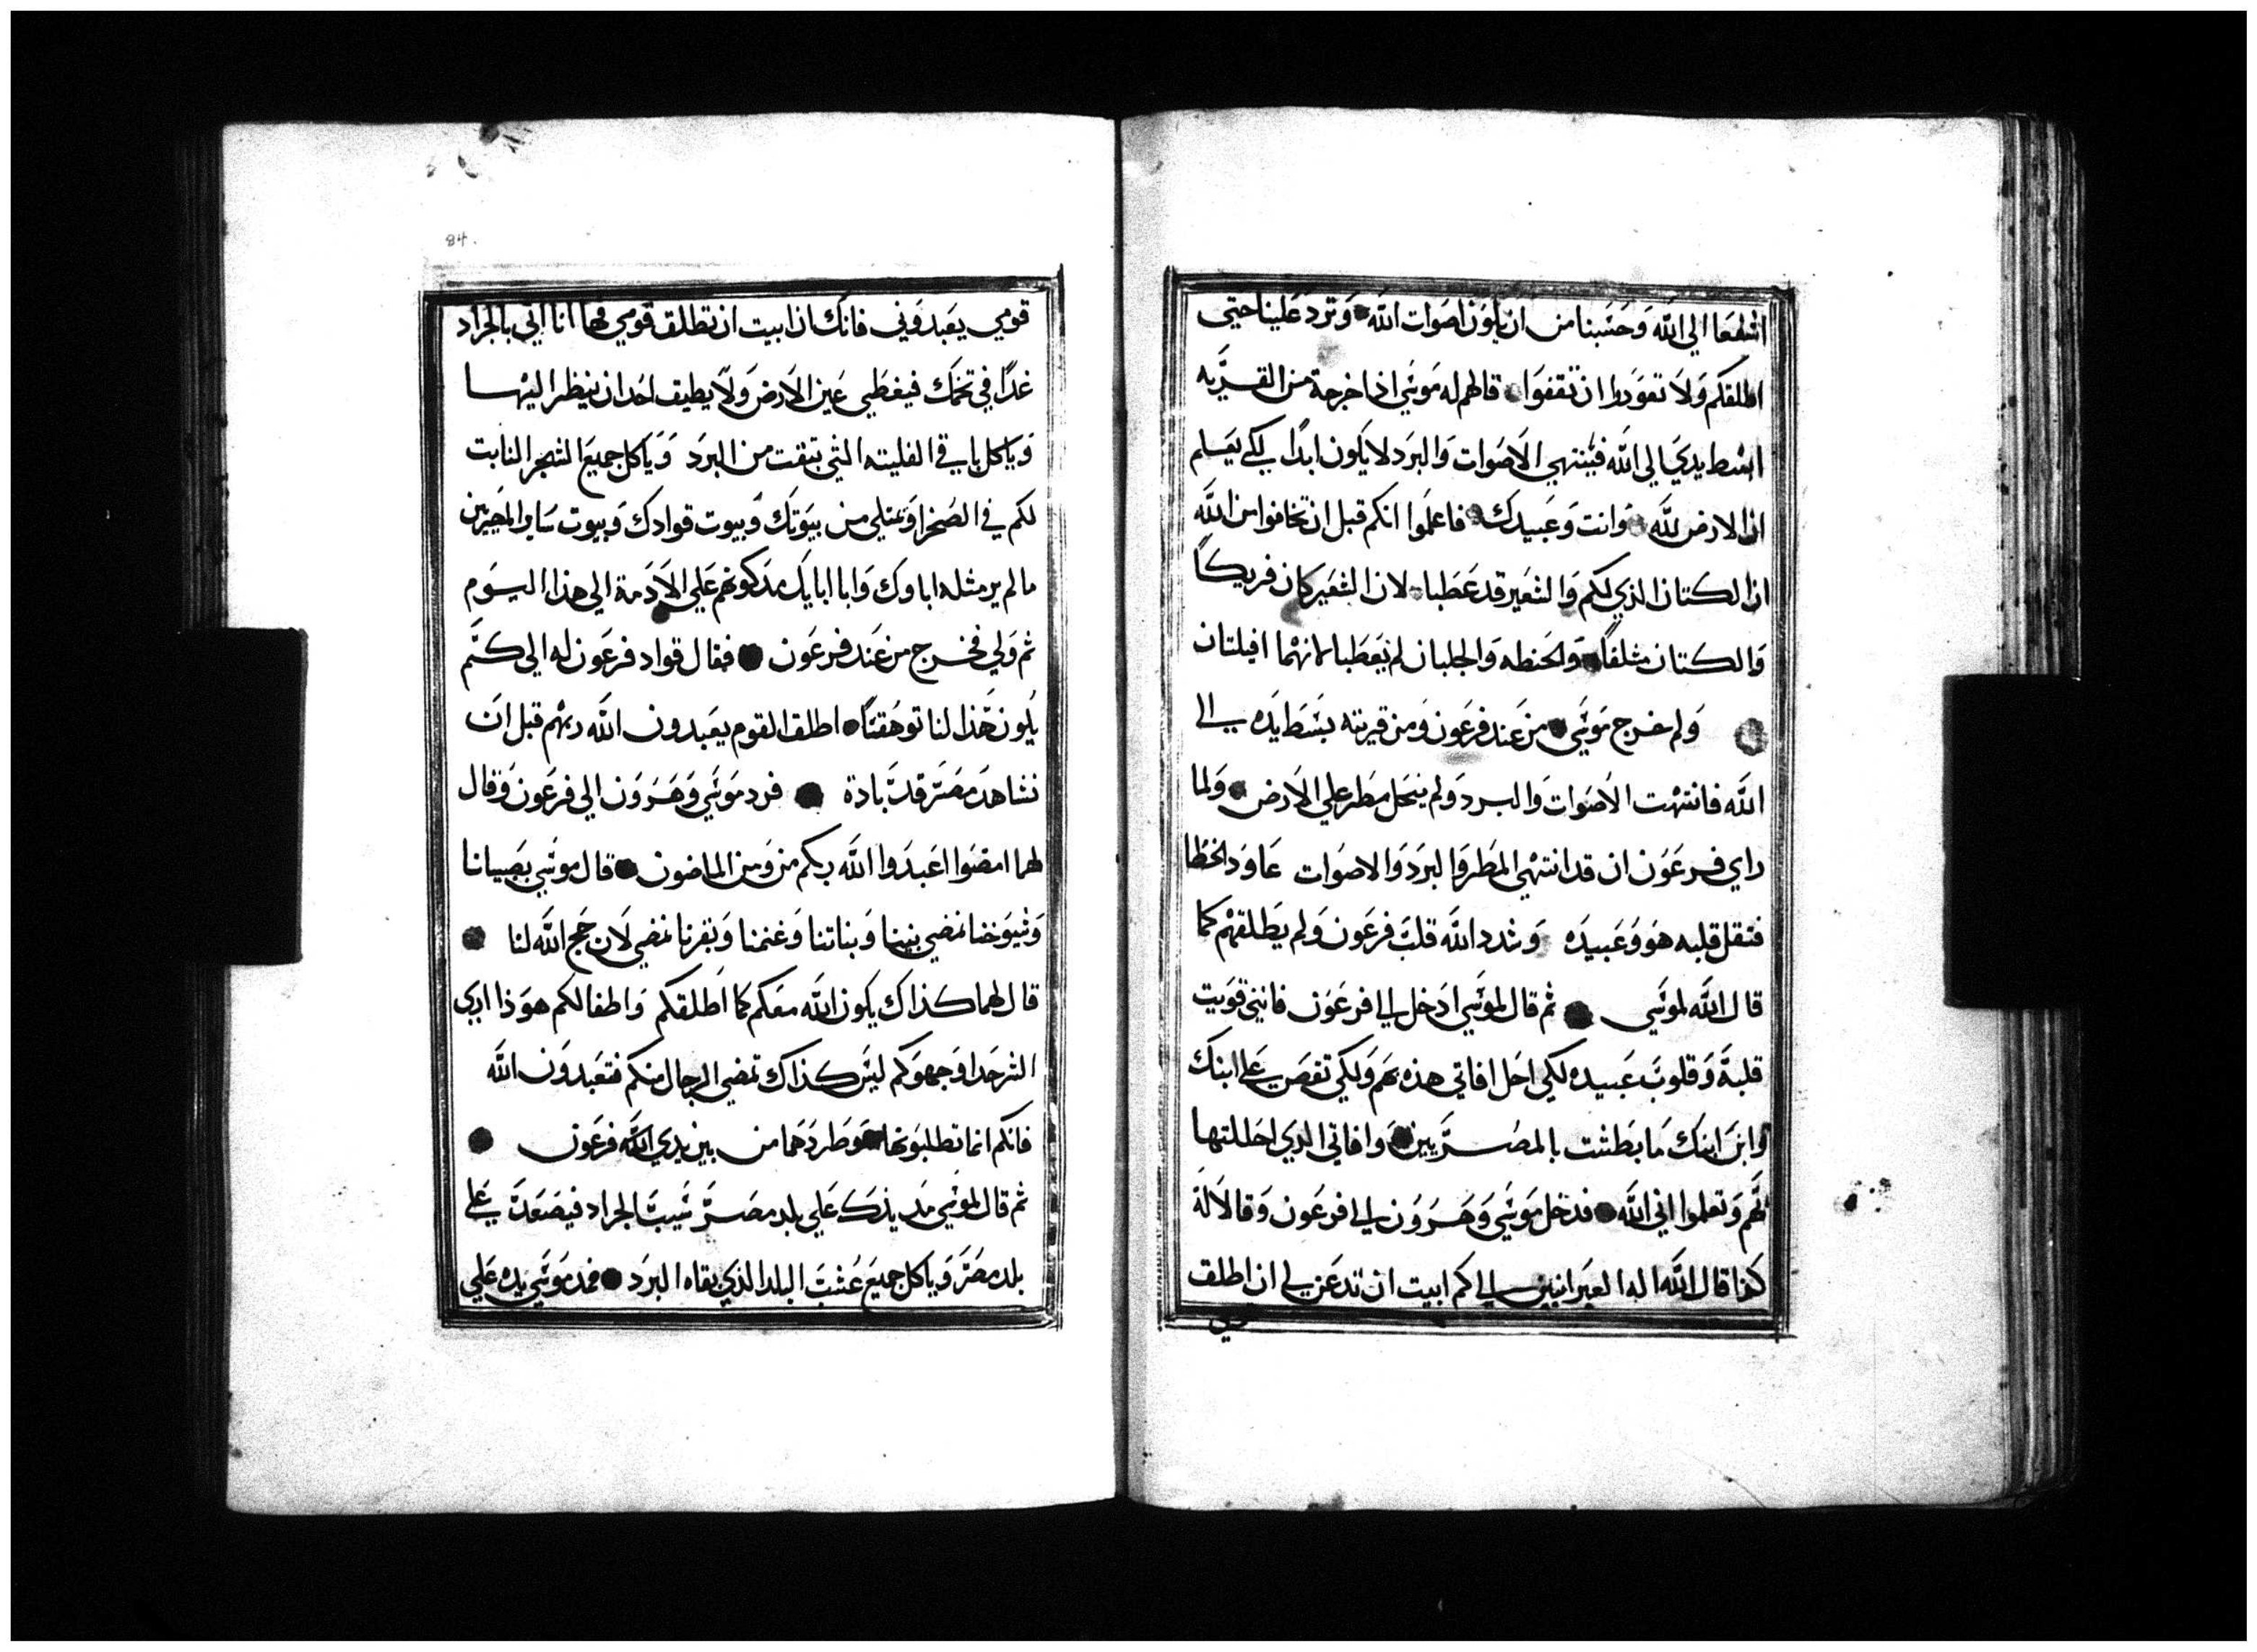 اشفعا الي الله وحسبنا من ان يكون اصوات الله وترد علينا حتي
اطلقكم ولا تعودوا ان تقفوا قال لهم له موسي اذا خرجة من القريه
ابسط يدي الي الله فينتهي الاصوات والبرد لا يكون ابدا لكي يعلم
ان الارض لله وانت وعبيدك فاعلموا انكم قبل ان تخافوا من الله
ان الكتان الذي لكم والشعير قد عطبا لان الشعير كان فريكا
والكتان مثلفا والحنطه والجلبان لم يعطبا لانهما افيلتان
ولم خرج موسي من عند فرعون ومن قريته بسط يده الي
الله فانتهت الاصوات والبرد ولم ينحل مطر علي الارض ولما
راي فرعون ان قد انتهي المطر والبرد والاصوات عاود الخطا
فتقل قلبه هو وعبيده وشدد الله قلب فرعون ولم يطلقهم كما
قال الله لموسي ثم قال لموسي ادخل الي فرعون فانني قويت
قلبة وقلوب عبيده لكي احل افاتي هذه بهم ولكي تقص علي ابنك
وابن ابنك ما بطشت بالمصريين وافاتي الذي احللتها
بهم وتعلموا اني الله فدخل موسي وهرون الي فرعون وقالا له
كذا قال الله اله العبرانيين الي كم ابيت ان تدعن لي ان اطلق
قومي
84.
قومي يعبدوني فانك ان ابيت ان تطلق قومي فها انا اتي بالجراد
غدا في تخمك فيغطي عين الارض ولا يطيق احد ان ينظر اليها
وياكل باقي الفليته التي بتقت من البرد وياكل جميع الشجر النابت
لكم في الصحرا وتمتلي من بيوتك وبيوت قوادك وبيوت ساير المصريين
ما لم ير مثله اباوك وابا ابايك مذ كونهم علي الادمة الي هذا اليوم
ثم ولي فخرج من عند فرعون فقال قواد فرعون له الي كم
يكون هذا لنا توهقنا اطلق القوم يعبدون الله ربهم قبل ان
نشاهد مصر قد بادة فرد موسي وهرون الي فرعون وقال
لهما امضوا اعبدوا الله ربكم من ومن الماضون قال موسي بصبيانا
وشيوخنا نمضي بنينا وبناتنا وغنمنا وبقرنا نمضي لان حج الله لنا
قال لهما كذاك يكون الله معكم كما اطلقكم واطفالكم هوذا اري
الشر حدا وجهوكم ليس كذاك تمضي الرجال منكم فتعبدون الله
فانكم انما تطلبونها وطردهما من بين يدي الله فرعون
ثم قال لموسي مد يدك علي بلد مصر شيب الجراد فيصعد علي
بلد مصر وياكل جميع عشب البلد الذي بقاه البرد فمد موسي يده علي